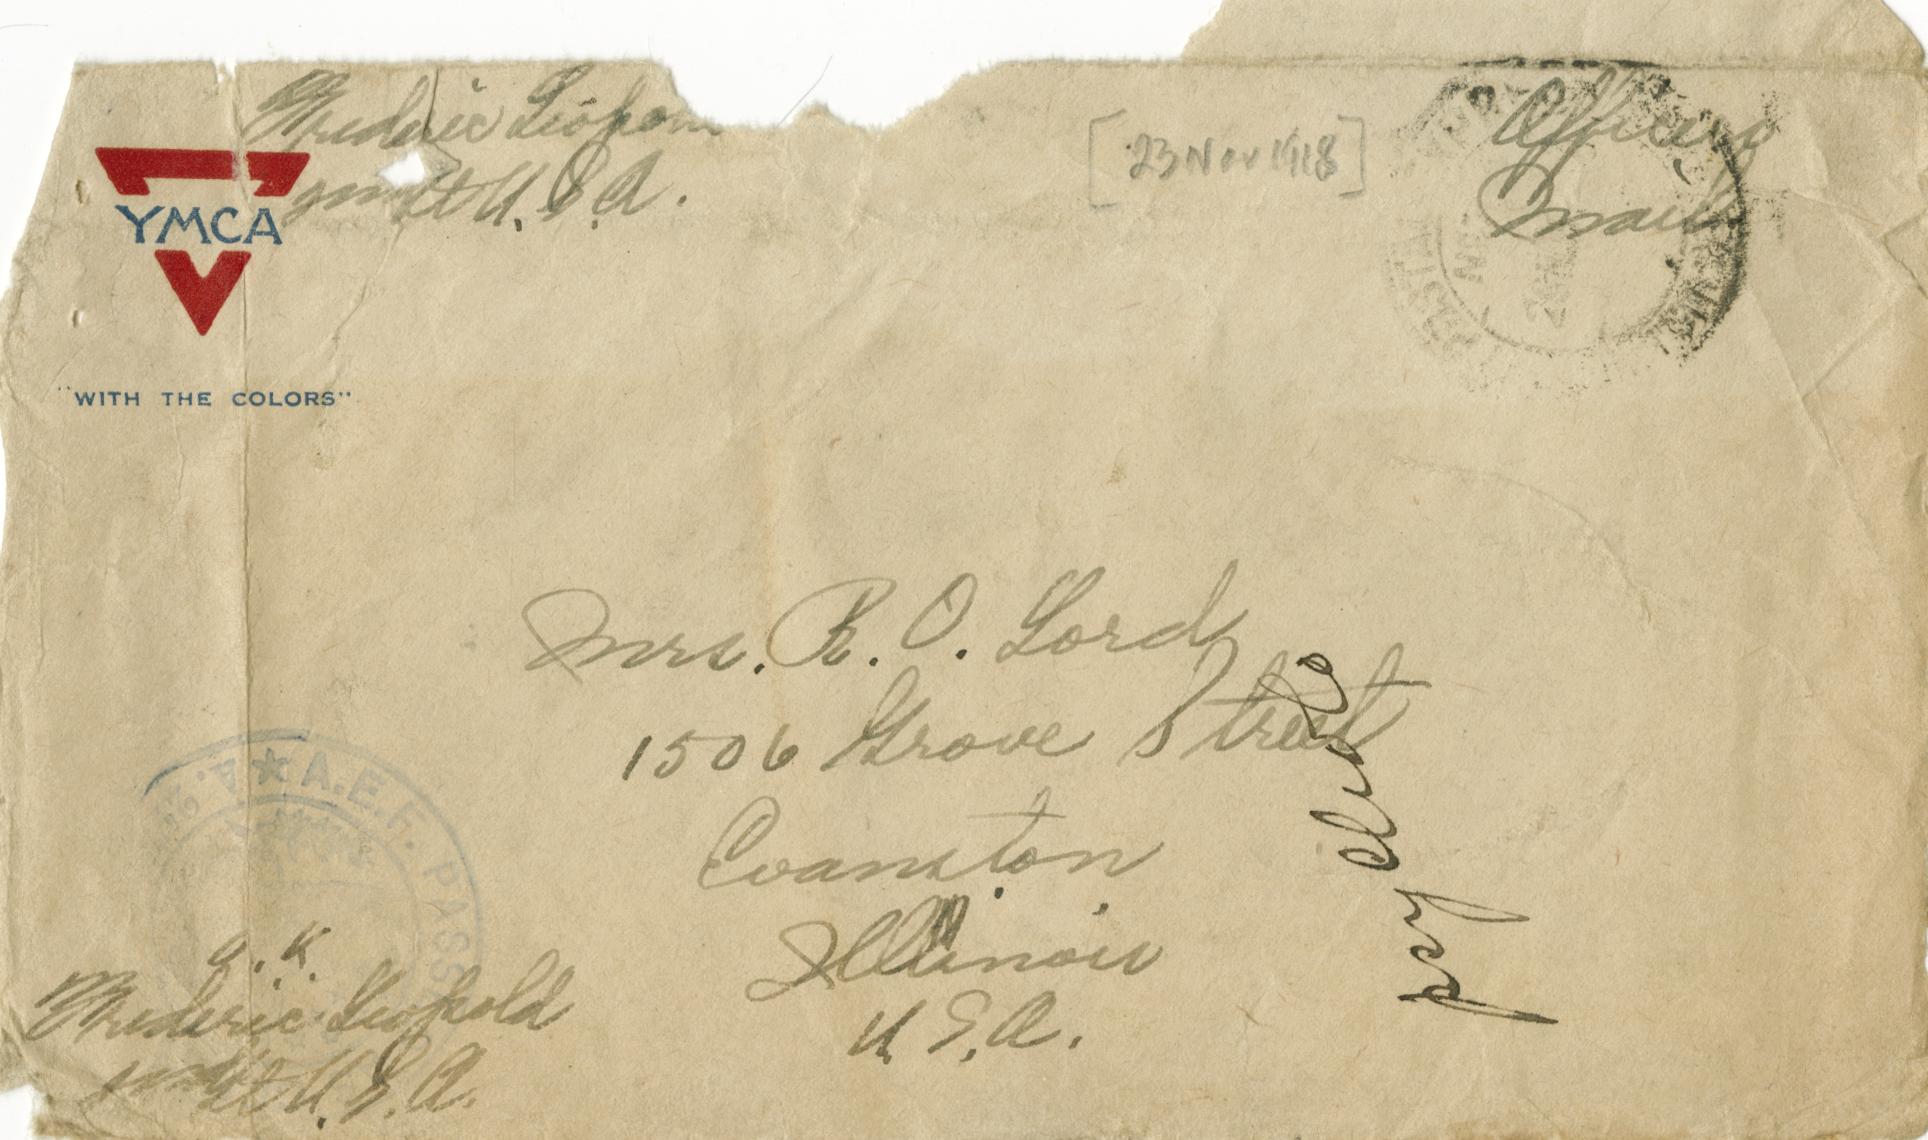 Frederic Leopold
Lt U.S.A.
[23 Nov 1918]
Officers
Mail
YMCA
"WITH THE COLORS"
Mrs. R. O. Lord
1506 Grove Street
Evanston
Illinois
U.S.A.
A.E.F. PASSE
O.K.
Frederic Leopold
Lt U.S.A.